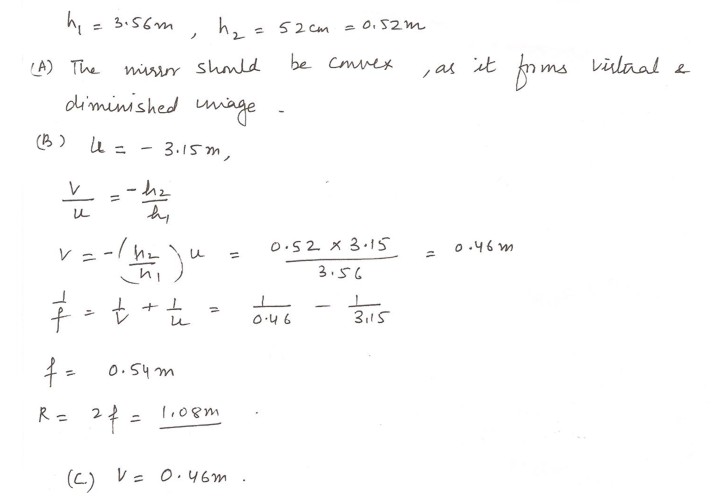 h₁ = 3.56m , h₂ = 52cm = 0.52m
(A) The mirror should be convex , as it forms virtual &
diminished image .
(B) u = - 3.15m,
v/u = -h₂/h₁
v = -(h₂/h₁) u = 0.52 x 3.15 / 3.56 = 0.46m
1/f = 1/v + 1/u = 1/0.46 - 1/3.15
f = 0.54m
R = 2f = 1.08m .
(C) V = 0.46m .